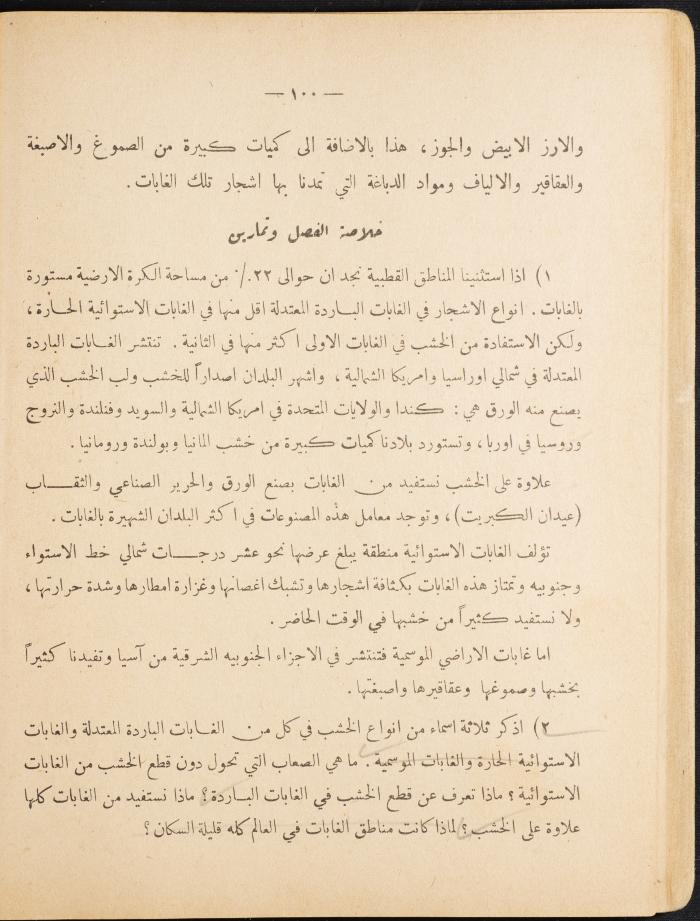 — ١٠٠ —
والارز الابيض والجوز، هذا بالاضافة الى كميات كبيرة من الصموغ والاصبغة
والعقاقير والالياف ومواد الدباغة التي تمدنا بها اشجار تلك الغابات.
خلاصة الفصل وتمارين
١) اذا استثنينا المناطق القطبية نجد ان حوالى ٢٢.٪ من مساحة الكرة الارضية مستورة
بالغابات. انواع الاشجار في الغابات الباردة المعتدلة اقل منها في الغابات الاستوائية الحارة،
ولكن الاستفادة من الخشب في الغابات الاولى اكثر منها في الثانية. تنتشر الغابات الباردة
المعتدلة في شمالي اوراسيا وامريكا الشمالية، واشهر البلدان اصداراً للخشب ولب الخشب الذي
يصنع منه الورق هي: كندا والولايات المتحدة في امريكا الشمالية والسويد وفنلندة والنروج
وروسيا في اوربا، وتستورد بلادنا كميات كبيرة من خشب المانيا وبولندة ورومانيا.
علاوة على الخشب نستفيد من الغابات بصنع الورق والحرير الصناعي والثقاب
(عيدان الكبريت)، وتوجد معامل هذه المصنوعات في اكثر البلدان الشهيرة بالغابات.
تؤلف الغابات الاستوائية منطقة يبلغ عرضها نحو عشر درجات شمالي خط الاستواء
وجنوبيه وتمتاز هذه الغابات بكثافة اشجارها وتشبك اغصانها وغزارة امطارها وشدة حرارتها،
ولا نستفيد كثيراً من خشبها في الوقت الحاضر.
اما غابات الاراضي الموسمية فتنتشر في الاجزاء الجنوبيه الشرقية من آسيا وتفيدنا كثيراً
بخشبها وصموغها وعقاقيرها واصبغتها.
٢) اذكر ثلاثة اسماء من انواع الخشب في كل من الغابات الباردة المعتدلة والغابات
الاستوائية الحارة والغابات الموسمية. ما هي الصعاب التي تحول دون قطع الخشب من الغابات
الاستوائية؟ ماذا تعرف عن قطع الخشب في الغابات الباردة؟ ماذا نستفيد من الغابات كلها
علاوة على الخشب؟ لماذا كانت مناطق الغابات في العالم كله قليلة السكان؟